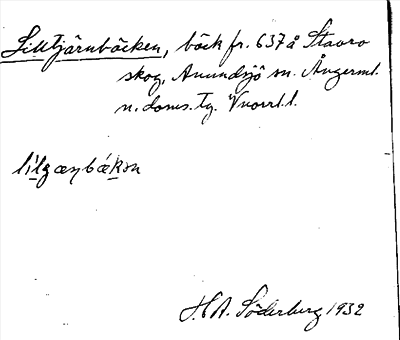 Lilltjärnbäcken, bäck fr. 637 å Stavro
skog, Anundsjö sn. Ångerml.
n. doms. Tg. Vnorrl. l.
lilgæṇbækən
H. A. Söderberg 1932